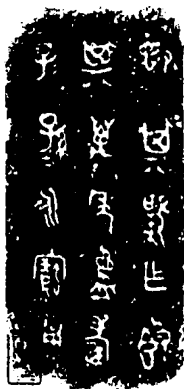 其肇乍
其萬年眉壽
子孫永寶用